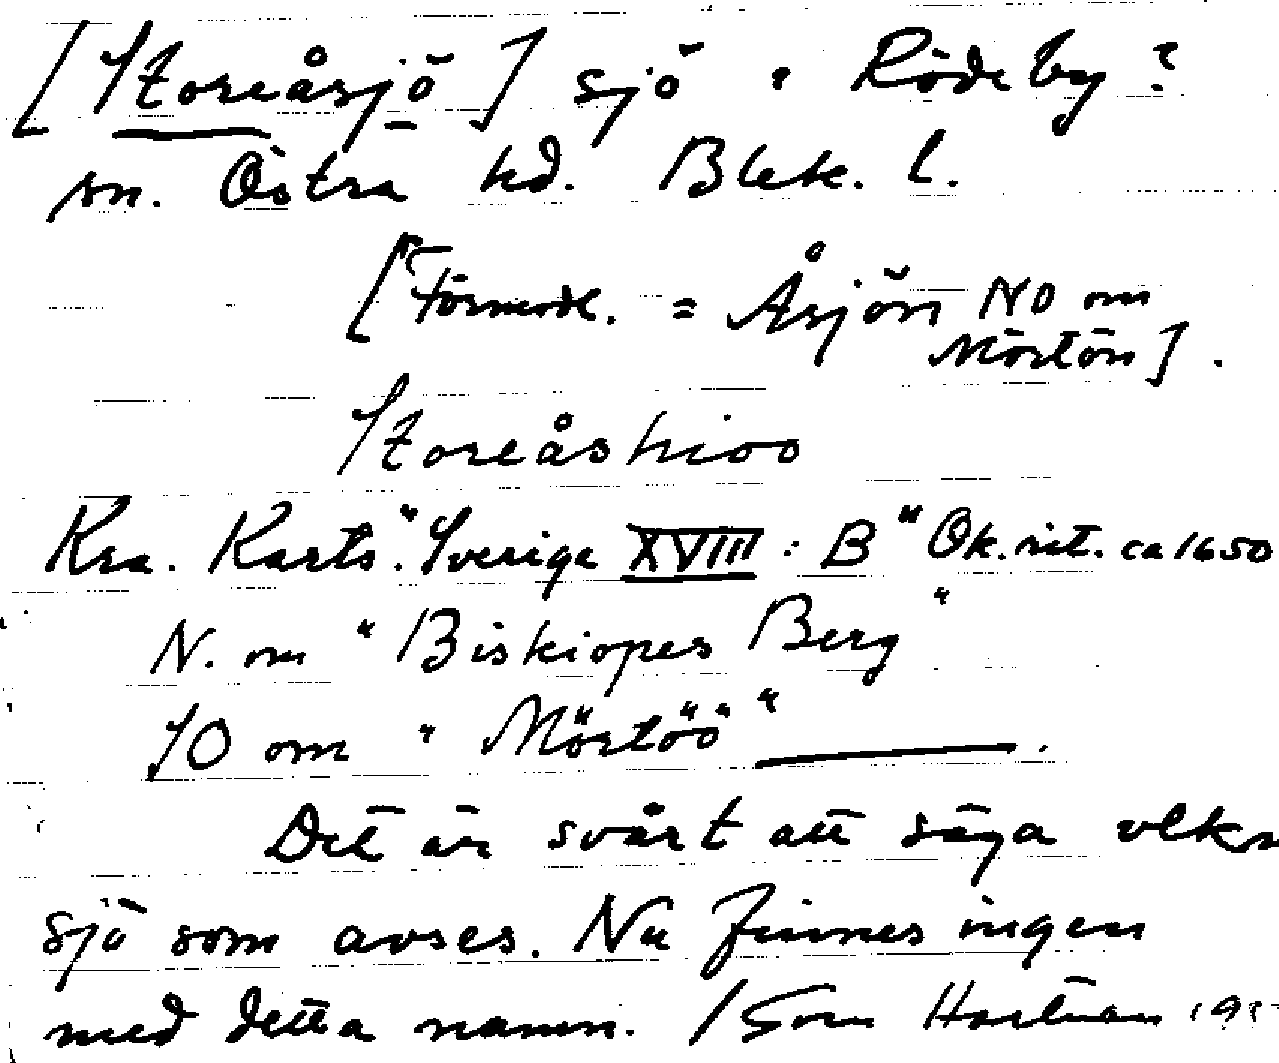 [Storeåsjö] sjö i Rödeby?
sn. Östra hd. Blek. l.
[Förmodl. = Åsjön NO om
Mörtön].
Storeåshioo
Kra. Karts. "Sverige XVIII : B" Ok. rit. ca 1650
N. om "Biskiopes Berg"
SO om "Mörtöö" .
Det är svårt att säga vlkn
sjö som avses. Nu finnes ingen
med detta namn. / Hartman